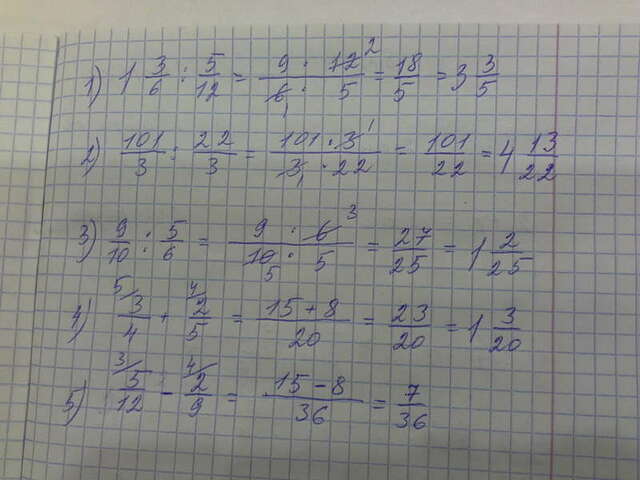 1) 1 3/6 : 5/12 = 9 · 12 2 / 6 1 · 5 = 18/5 = 3 3/5
2) 101/3 : 22/3 = 101 · 3 1 / 3 1 · 22 = 101/22 = 4 13/22
3) 9/10 : 5/6 = 9 · 6 3 / 10 5 · 5 = 27/25 = 1 2/25
4) 5/ 3/4 + 4/ 2/5 = 15 + 8 / 20 = 23/20 = 1 3/20
5) 3/ 5/12 - 4/ 2/9 = 15 - 8 / 36 = 7/36